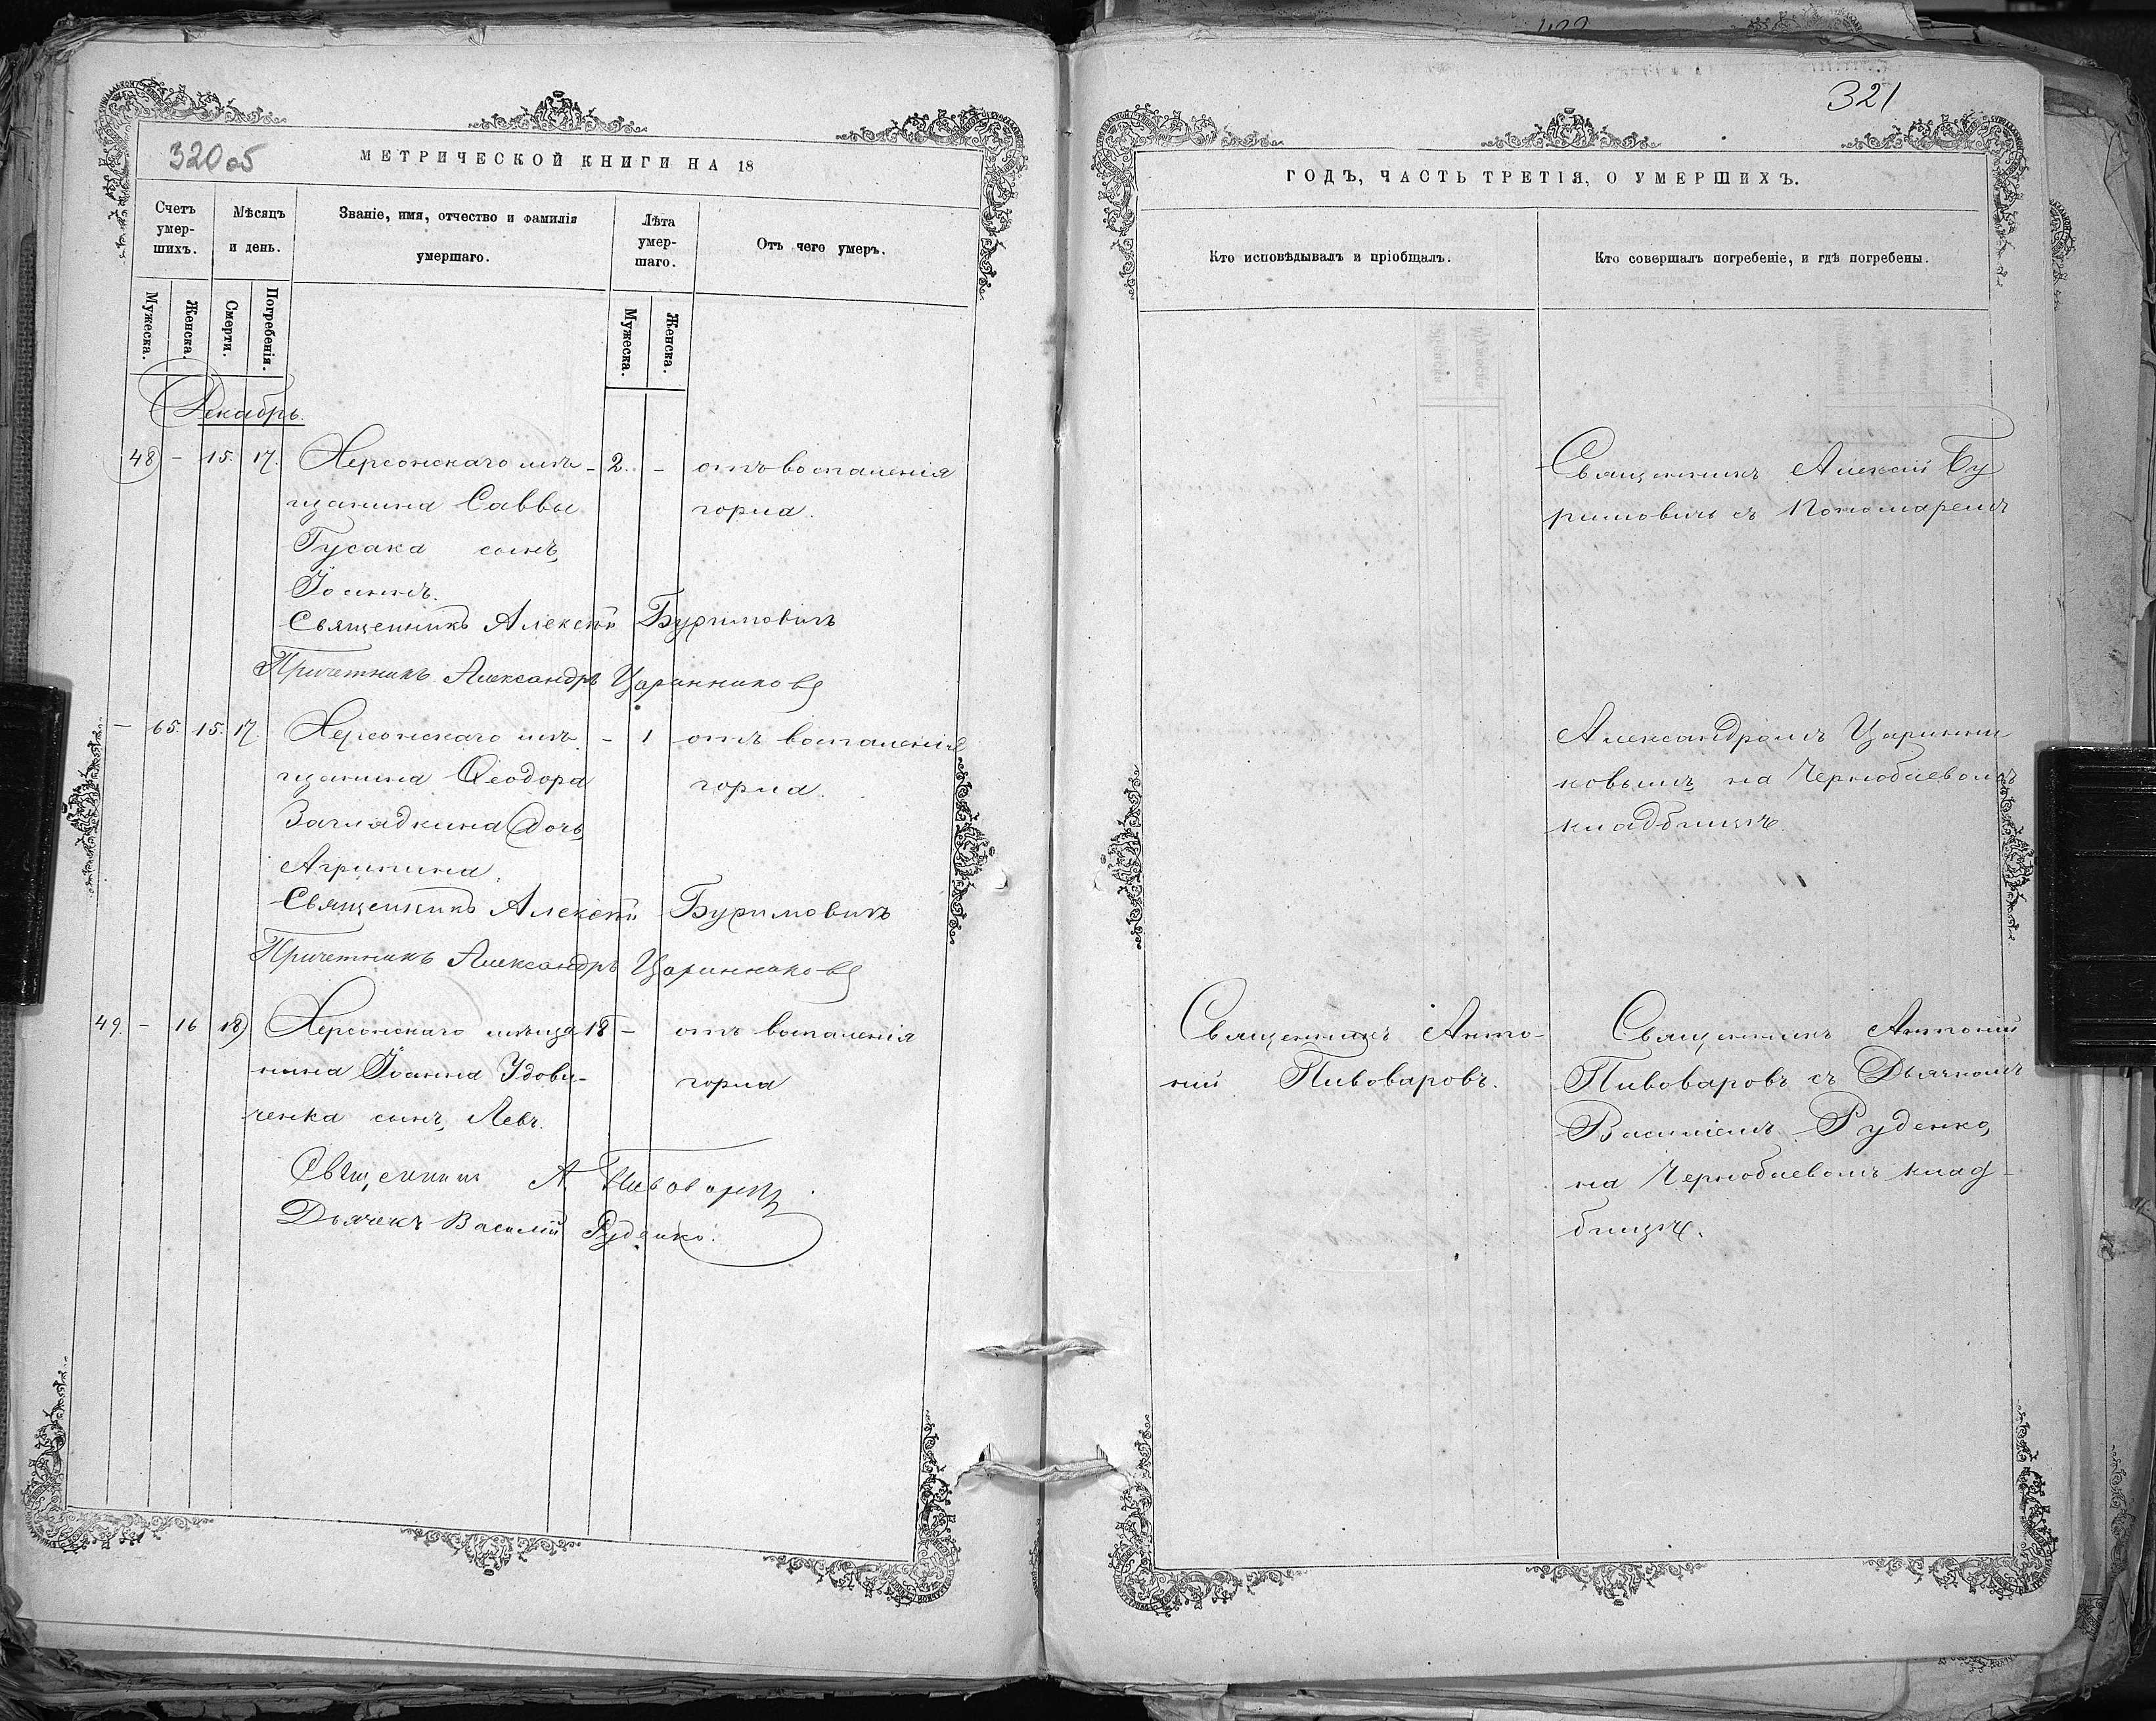 422
320об
МЕТРИЧЕСКОЙ КНИГИ НА 18
Счетъ умер-шихъ.
Мѣсяцъ и день.
Званіе, имя, отчество и фамилія умершаго.
Лѣта умер-шаго.
Отъ чего умеръ.
Мужеска.
Женска.
Смерти.
Погребенія.
Мужеска.
Женска.
Декабрь.
48 - 15. 17. Херсонскаго мѣ- 2. - отъ воспаленія
щанина Саввы горла.
Гусака сынъ,
Іоаннъ.
Священникъ Алексѣй Буримовичъ
Причетникъ Александръ Царинниковъ
- 65. 15. 17. Херсонскаго мѣ- - 1 отъ воспаленія
щанина Ѳеодора горла.
Заглядкина дочь,
Агрипина.
Священникъ Алексѣй Буримовичъ
Причетникъ Александръ Царинниковъ
49. - 16 18 Херсонскаго мѣща- 18 - отъ воспаленія
нина Іоанна Удови- горла
ченка сынъ, Левъ.
Священникъ А. Пивоваровъ
Дьячекъ Василій Руденко.
321
ГОДЪ, ЧАСТЬ ТРЕТІЯ, О УМЕРШИХЪ.
Кто исповѣдывалъ и пріобщалъ.
Кто совершалъ погребеніе, и гдѣ погребены.
Священникъ Алексій Бу
римовичъ съ Пономаремъ
Александромъ Царинни
ковымъ, на Чернобаевомъ
кладбищѣ.
Священникъ Анто- Священникъ Антоній
ній Пивоваровъ. Пивоваровъ съ Дьячкомъ
Василіемъ Руденко,
на Чернобаевомъ клад-
бищѣ.